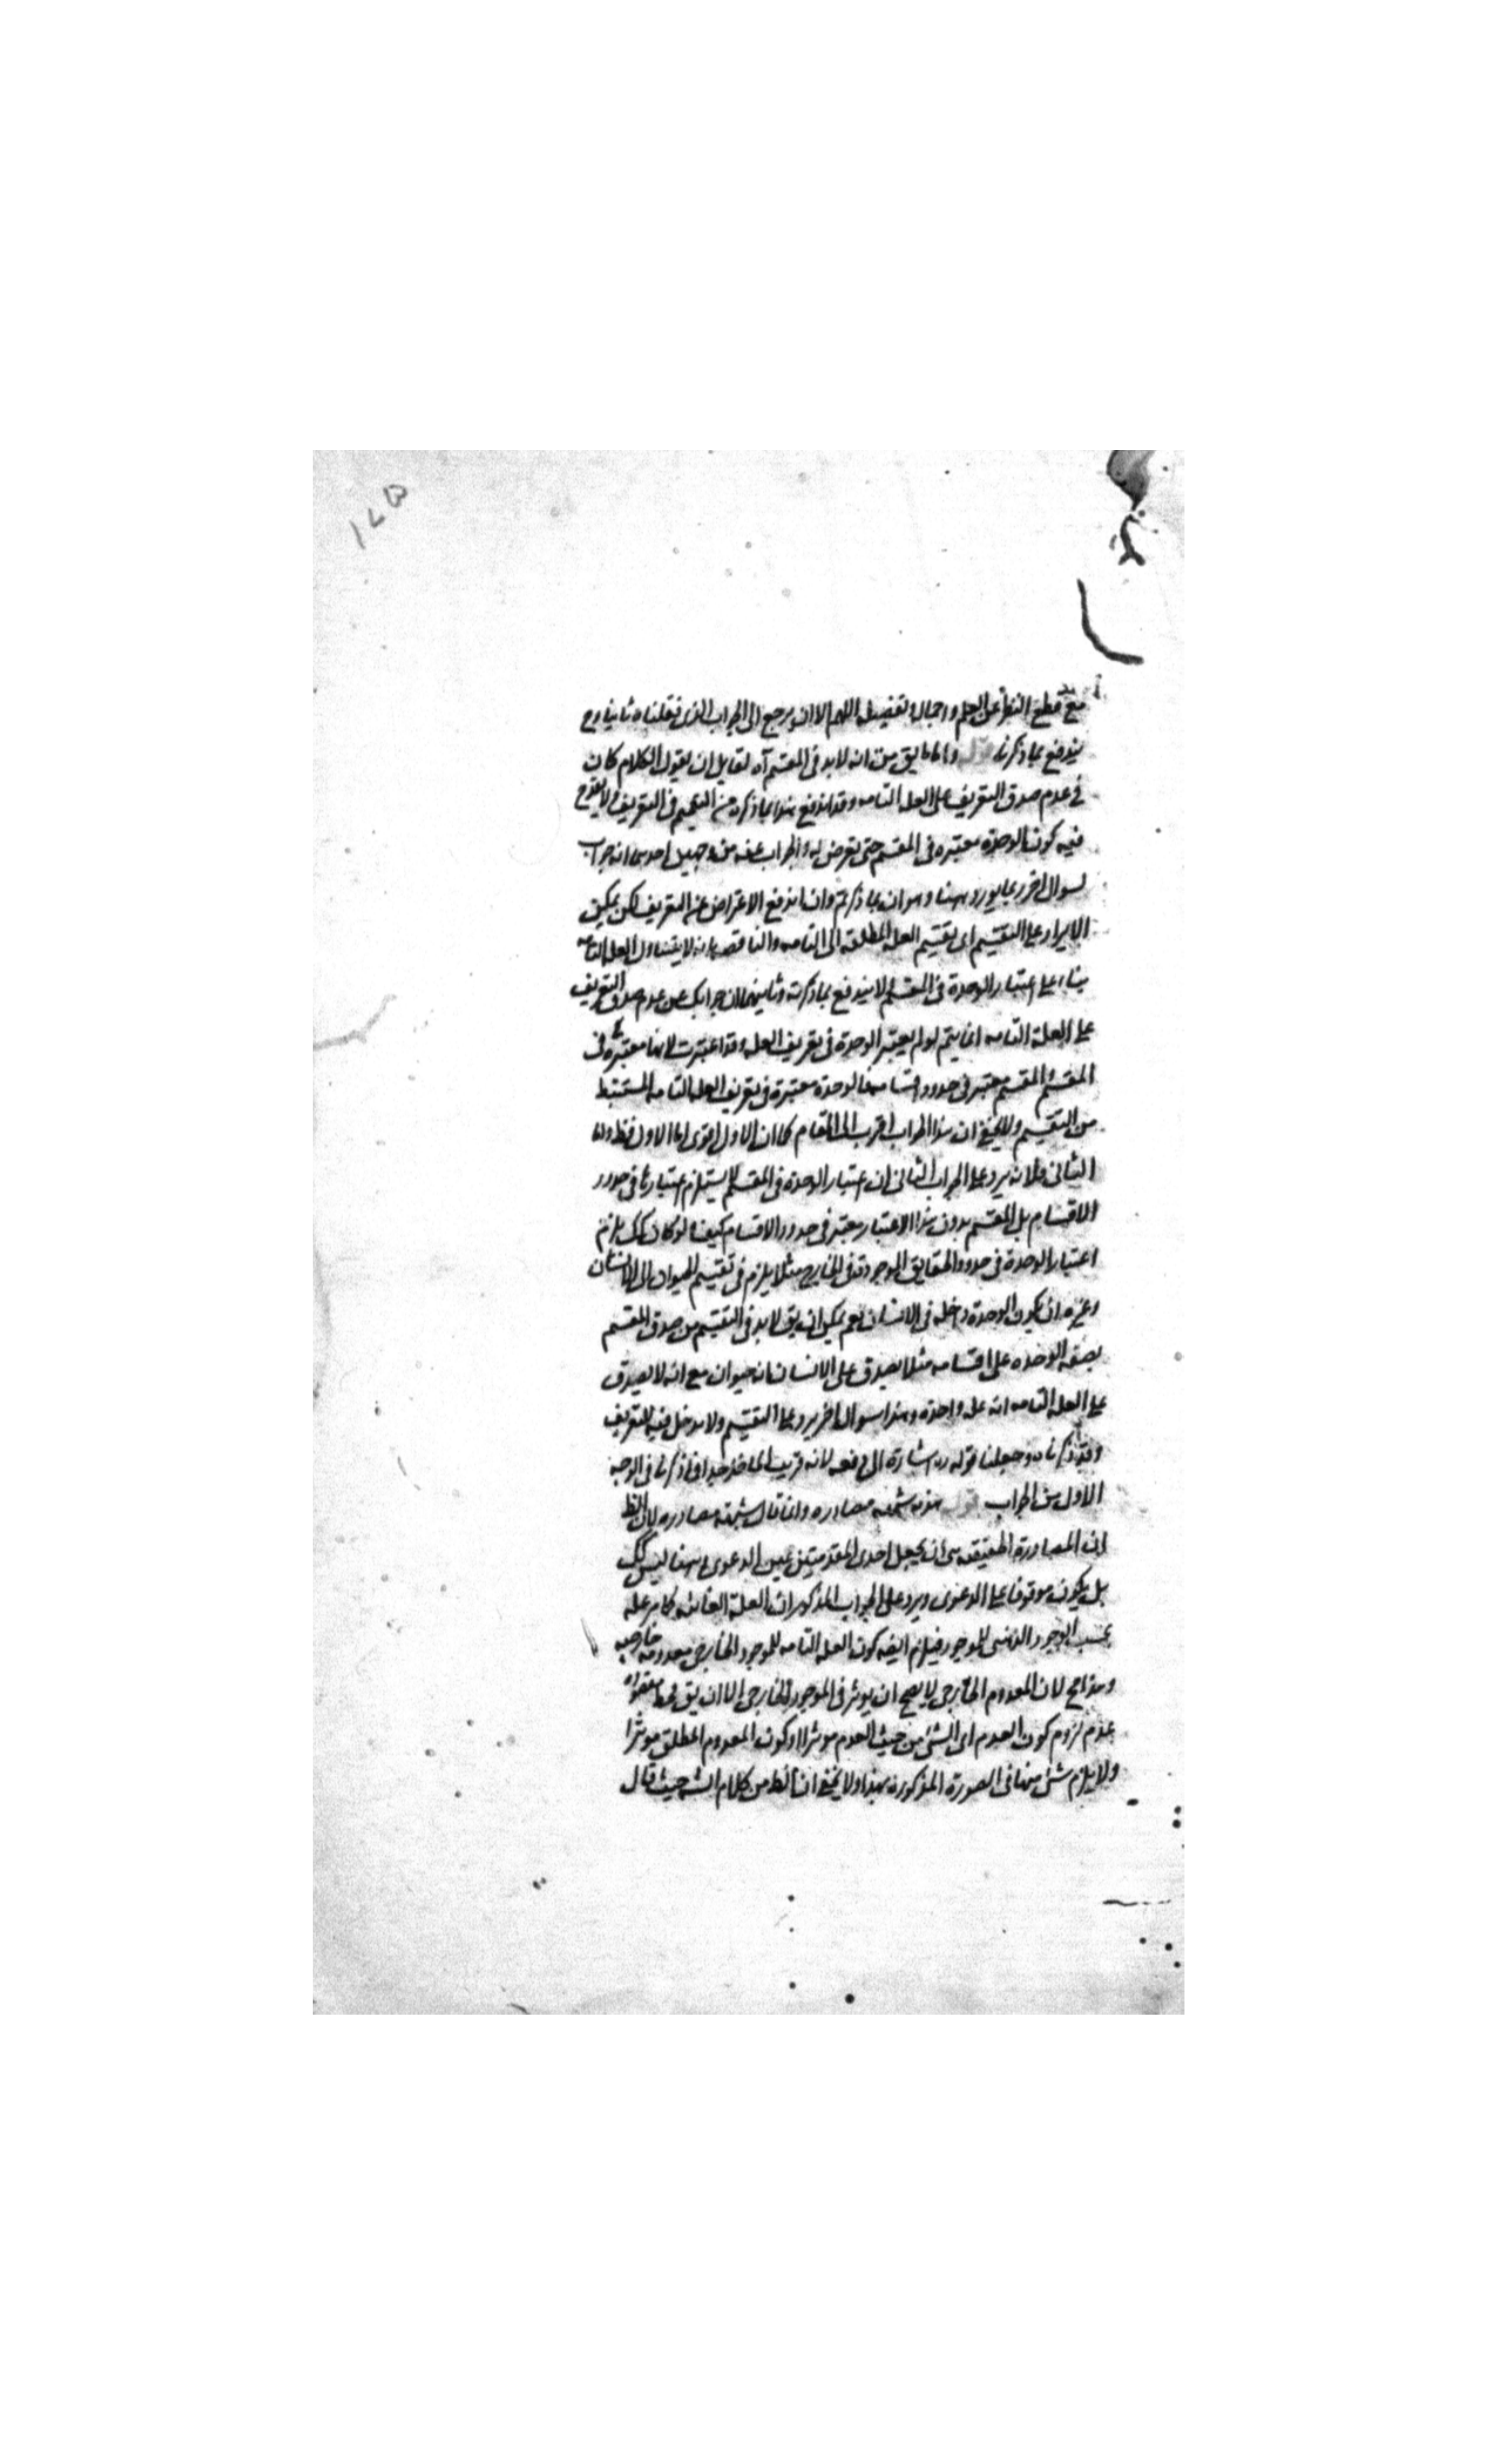 مع قطع النظر عن العلم واجماله تفصيله اللهم الا ان يرجع الى الجواب الذى نقلناه ثانيا وح
يندفع بما ذكرنا قوله واما ما يق من انه لا بد فى المقسم آه لقايل ان يقول الكلام كان
فى عدم صدق التعريف على العله التامه وقد اندفع هذا بما ذكره من التعميم فى التعريف ولا يقدح
فيه كون الوحدة معتبره فى المقسم حتى يتعرض له والجواب عنه من وجهين احدهما انه جواب
لسوال اخر ربما يورد ههنا وهو ان بما ذكرتم وان اندفع الاعتراض عن التعريف لكن يمكن
الايراد على التقسيم اى تقسيم العله المطلقه الى التامه والناقصه بانه لا يتناول العله التامه
بناء على اعتبار الوحدة فى المقسم لا يندفع بما ذكرته وثانيهما ان جوابك عن عدم صدق التعريف
على العلة التامه انما يتم لو لم يعتبر الوحدة فى تعريف العله وقد اعتبرت لانها معتبرة فى
المقسم والمقسم معتبر فى حدود اقسامه فالوحدة معتبرة فى تعريف العله التامه المستنبط
من التقسيم ولا يخفى ان هذا الجواب اقرب الى المقام كما ان الاول اقوى اما الاول فظ واما
الثانى فلانه يرد على الجواب الثانى ان اعتبار الوحدة فى المقسم لا يستلزم اعتبارها فى حدود
الاقسام بل المقسم بدون هذا الاعتبار معتبر فى حدود الاقسام كيف ولو كان كك يلزم
اعتبار الوحدة فى حدود الحقايق الموجودة فى الخارج مثلا يلزم فى تقسيم الحيوان الى الانسان
وغيره ان يكون الوحدة داخله فى الانسان نعم يمكن ان يق لا بد فى التقسيم من صدق المقسم
بصفة الوحده على اقسامه مثلا يصدق على الانسان انه حيوان مع انه لا يصدق
على العله التامه انه عله واحدة وهذا سوال اخر يرد على التقسيم ولا مدخل فيه للتعريف
وقد ذكرناه وجعلنا قوله اشارة الى دفعه لانه قريب الماخذ جدا فما ذكرنا فى الوجه
الاول من الجواب قوله هذه شبهة مصادره وانما قال شبهة مصادره لان الظ
ان المصادرة الحقيقه هى ان يجعل احدى المقدمتين عين الدعوى وههنا ليس كك
بل يكون موقوفا على الدعوى ويرد على الجواب المذكور ان العلة الغائيه كما مر عله
بحسب الوجود الذهنى للموجود فيلزم ايضه كون العله التامه للموجود الخارجى معدومة خارجيه
وهذا مح لان المعدوم الخارجى لا يصح ان يوثر فى الموجود الخارجى الا ان يق مقصوده
عدم لزوم كون العدم اى الشئ من حيث العدم موثرا او كون المعدوم المطلق موثرا
ولا يلزم شئ منها فى الصورة المذكوره هذا ولا يخفى ان الظ من كلام الشه حيث قال